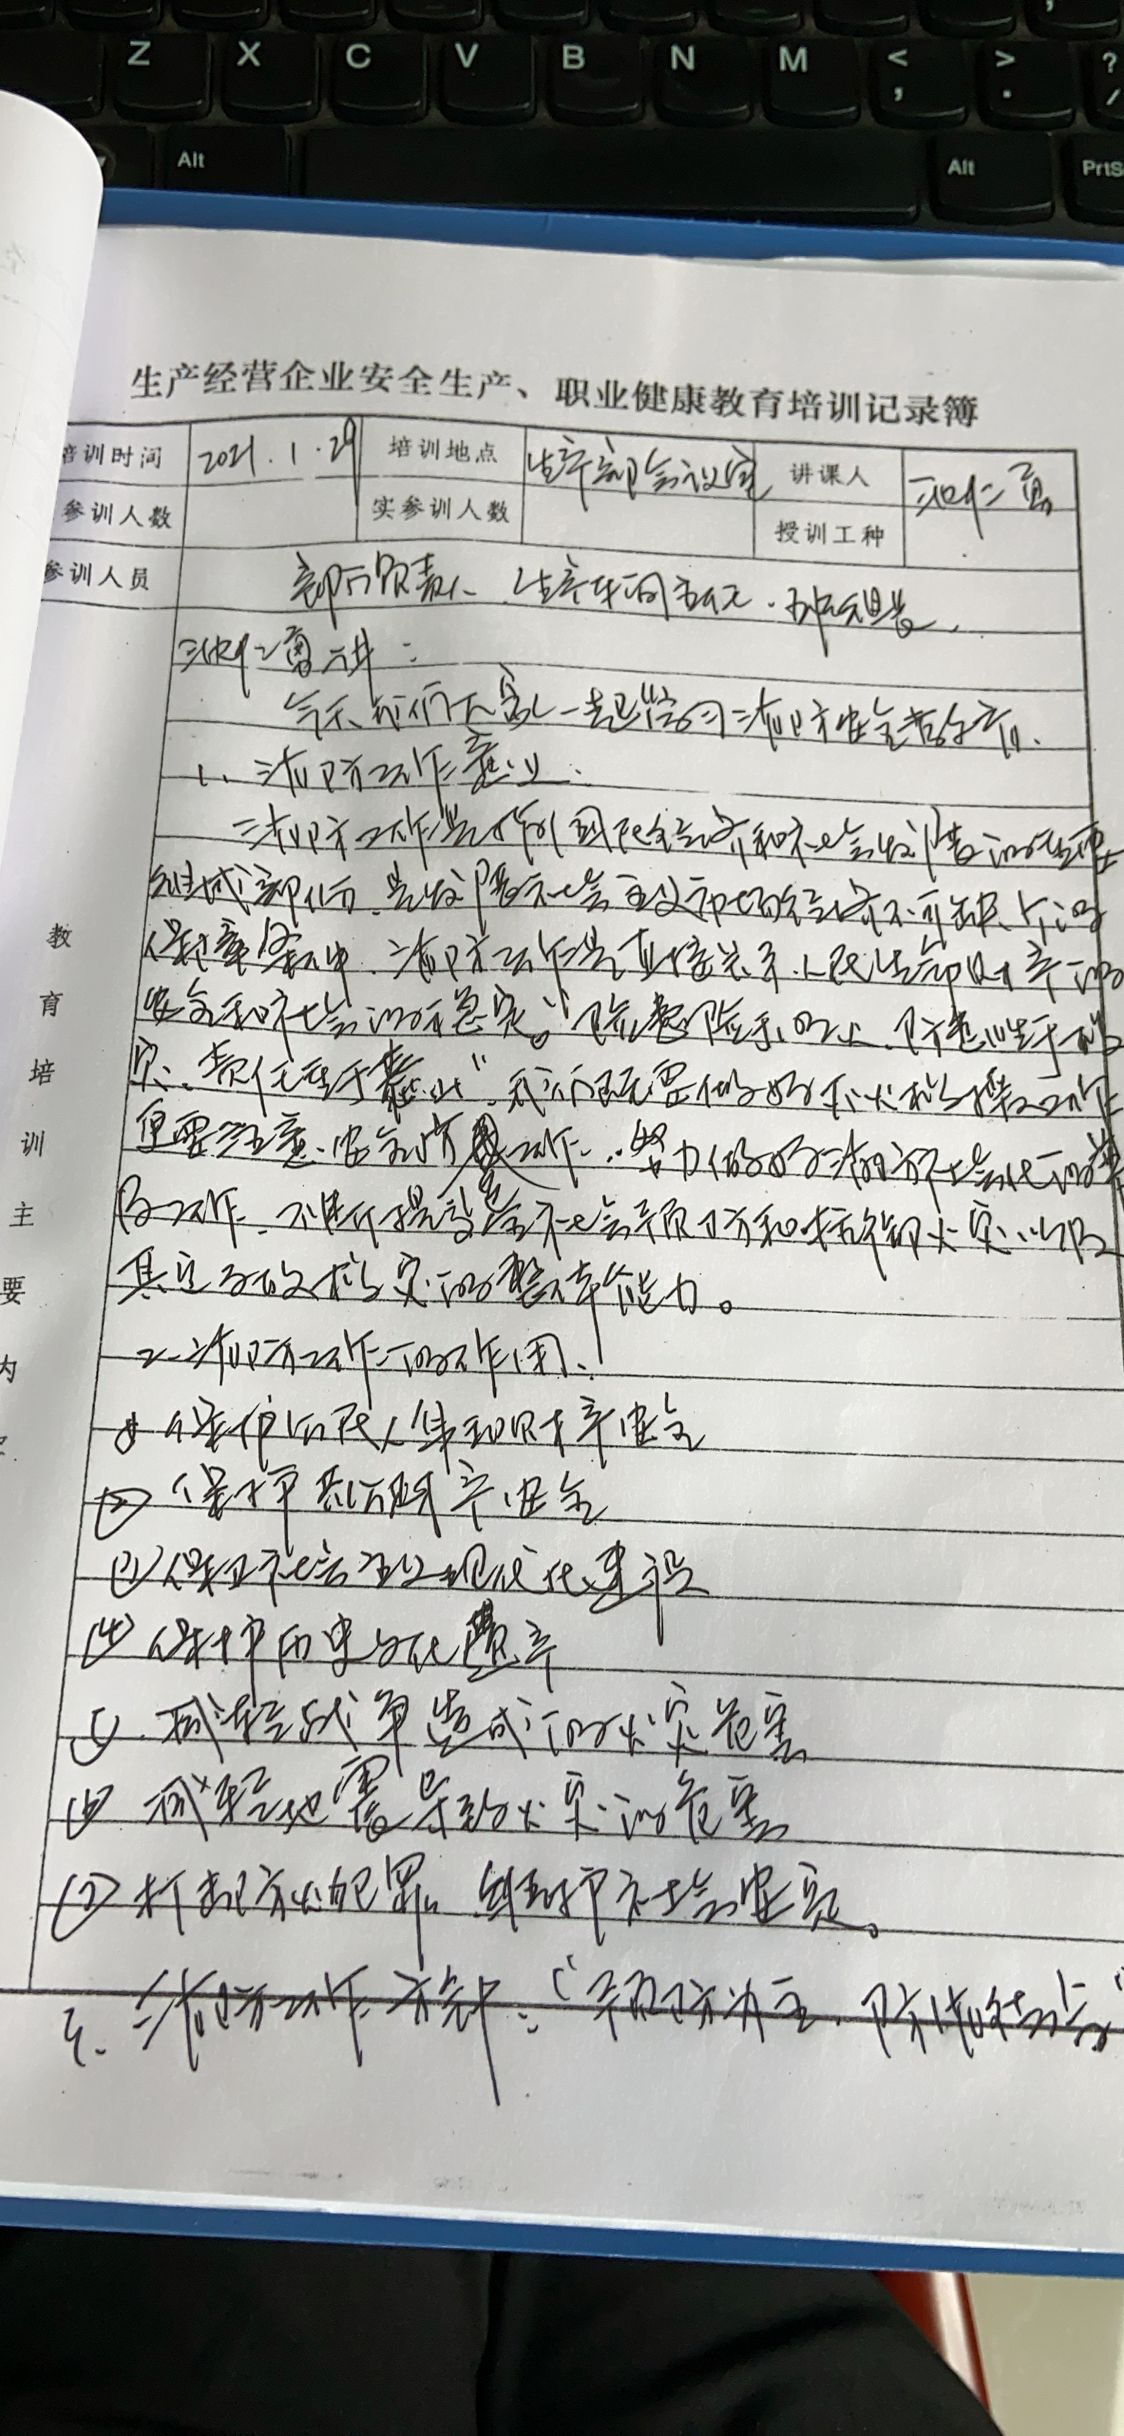 Z X C V B N M < , > . ? /
Alt Alt PrtS
生产经营企业安全生产、职业健康教育培训记录簿
培训时间 2021.1.29 培训地点 生产部会议室 讲课人
参训人数 实参训人数 授训工种
参训人员 部门负责人、生产车间主任、班组长.
讲:
今天、我们大家一起学习消防安全
1、消防工作意义:
消防工作是 国民经济和社会发展的重要
组成部分, 是发展社会主义市场经济不可缺少的
保障条件. 消防工作是直接关系人民生命财产的
安全和社会的稳定。"隐患险于明火,防范胜于救
灾,责任重于泰山",我们既要做好灭火 工作
更要注意安全 工作,努力做好消防社会化的
工作, 不断提高全社会预防和抗御火灾以及
其它 灾的整体能力。
二、消防工作的作用:
(1) 保护公民人身和财产安全
(2) 保护 财产安全
(3) 保卫社会主义现代化建设
(4) 保护历史文化遗产
(5) 减轻战争造成的火灾危害
(6) 减轻地震导致火灾的危害
(7) 打击放火犯罪 维护社会安定。
三、消防工作方针:"预防为主、防消结合"
教育培训主要内